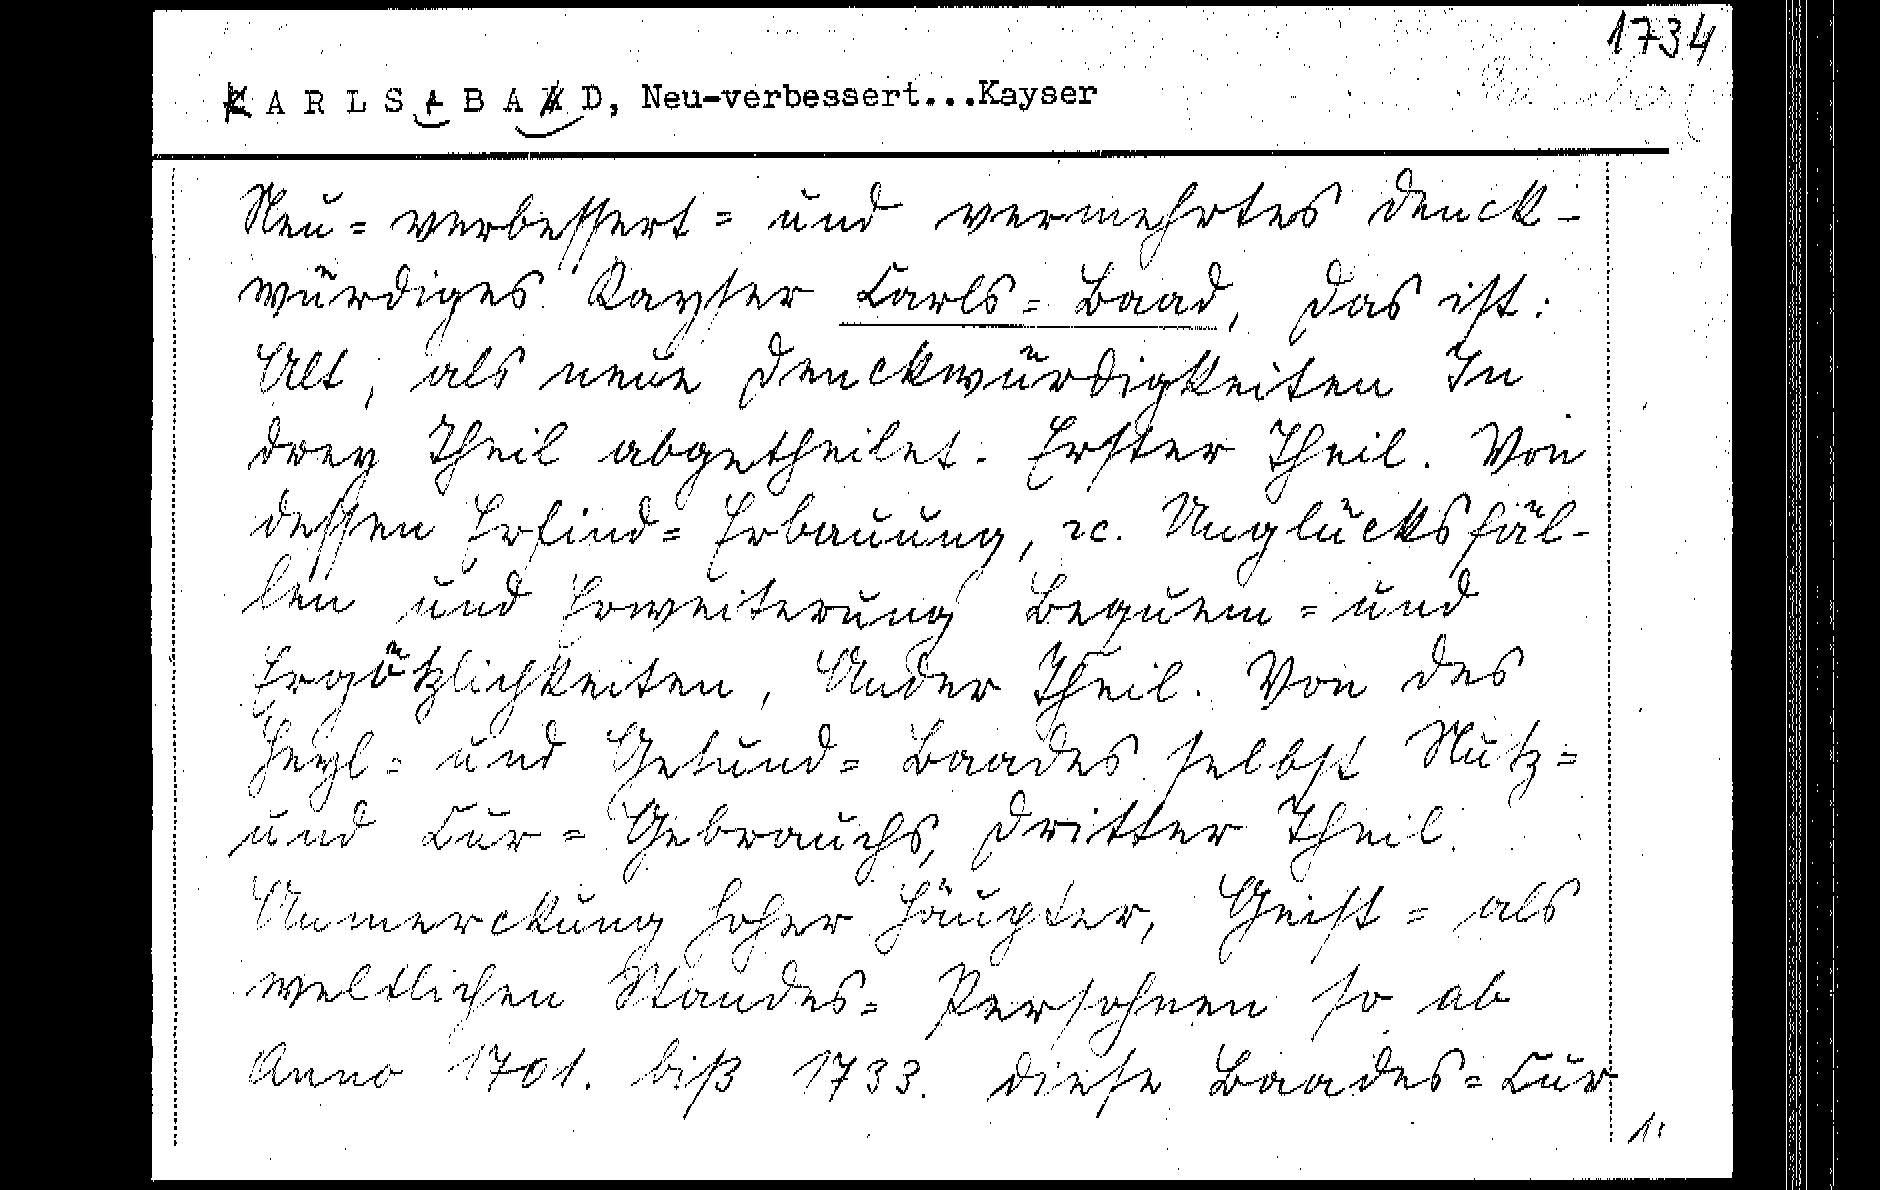 1734
KARLSBAD, Neu-verbessert...Kayser
Neu= verbessert= und vermehrtes Denck-
würdiges Kayser Carls= Baad, Das ist:
Alt, als neue Denckwürdigkeiten In
drey Theil abgetheilet. Erster Theil. Von
dessen Erfind= Erbauung, ꝛc. Unglücksfäl-
len und Erweiterung Bequem= und
Ergötzlichkeiten, Ander Theil. Von des
Heyl= und Gesund= Baades selbst Nutz=
und Cur= Gebrauchs, Dritter Theil.
Anmerckung hoher Häupter, Geist= als
weltlichen Standes= Persohnen so ab
Anno 1701. biß 1733. diese Baades=Cur
1.